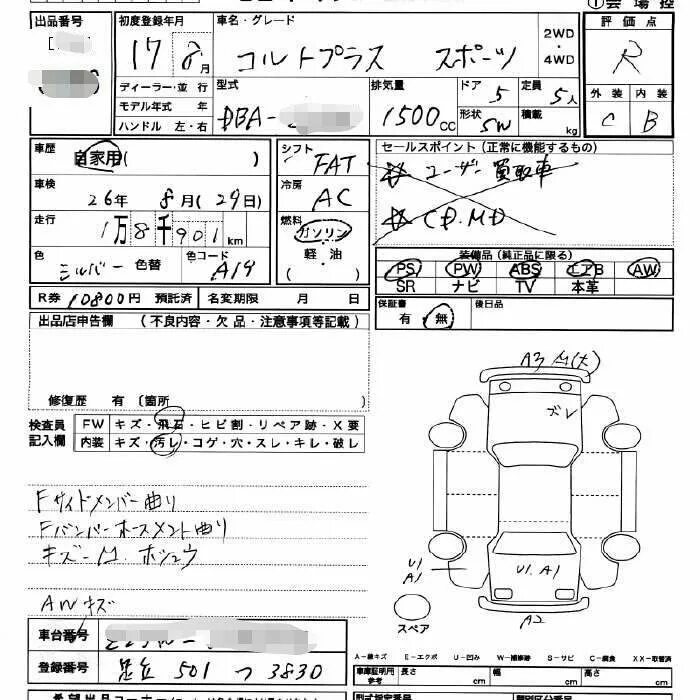 ①会場控
出品番号
初度登録年月
17 8月
車名・グレード
コルトプラス スポーツ
2WD
・
4WD
評価点
R
外装 内装
C B
ディーラー・並行
モデル年式 年
ハンドル 左・右
型式
DBA-
排気量
1500cc
ドア 5
形状 SW
定員 5人
積載 kg
車歴
自家用( )
車検
26年 8月(29日)
走行
1万8千901km
色
シルバー 色替
色コード
A19
シフト
FAT
冷房
AC
燃料
ガソリン
軽・油
( )
セールスポイント(正常に機能するもの)
ユーザー買取車
CD.MD
装備品(純正品に限る)
PS PW ABS エアB AW
SR ナビ TV 本革
保証書
有・無
後日品
R券 10800円 預託済 名変期限 月 日
出品店申告欄 (不良内容・欠品・注意事項等記載)
修復歴 有〔箇所
検査員
記入欄
FW キズ・飛石・ヒビ割・リペア跡・X要
内装 キズ・汚レ・コゲ・穴・スレ・キレ・破レ
Fサイドメンバー曲り
Fバンパーホースメント曲り
キズ-凹 ホシュウ
AWキズ
A3
(大)
ズレ
U1
A1
U1.A1
A2
スペア
車台番号
登録番号
足立 501 つ 3830
A-線キズ E-エクボ U-凹み W-補修跡 S-サビ C-腐食 XX-取替済
車庫証明用
参考
長さ cm
幅 cm
高さ cm
型式指定番号
類別区分番号